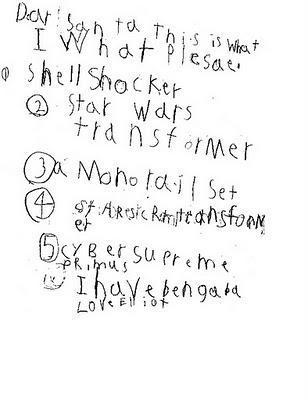 Dear Santa this is what
I What Plesae.
① Shell Shocker
② Star Wars
transformer
③ a Monorail Set
④
er
⑤ CYBer supreme
PRimus
I have ben gaba
LOVe Elliot